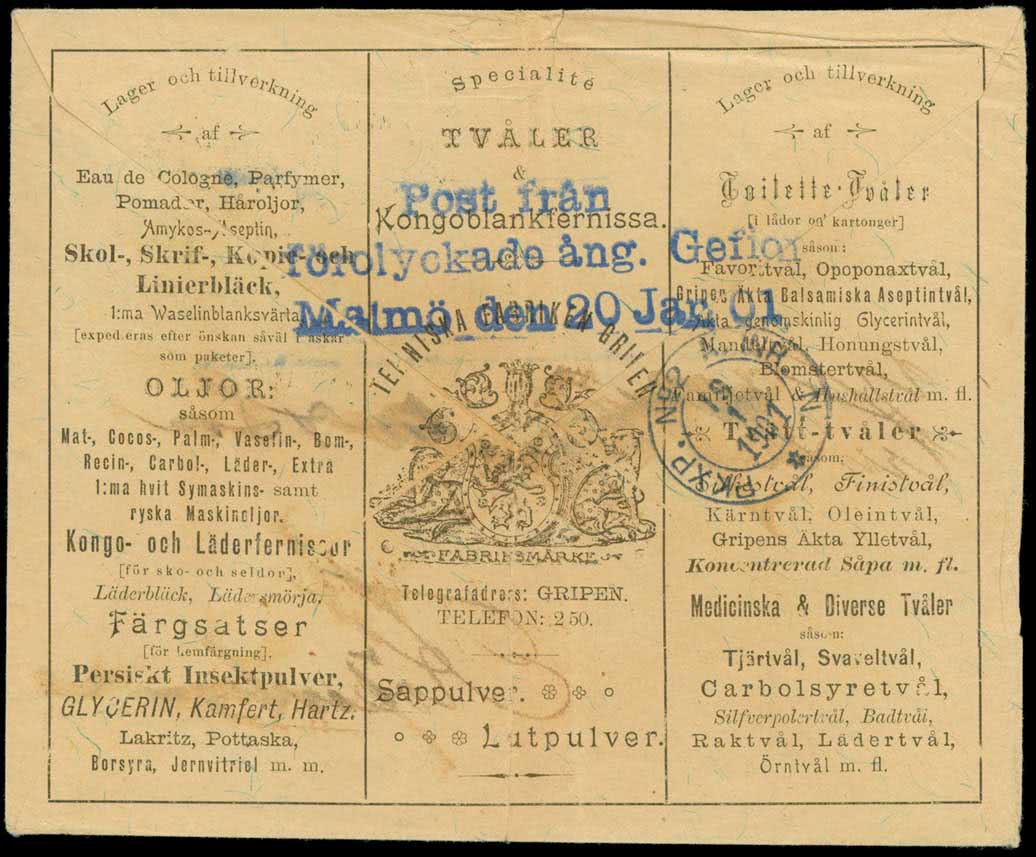 Lager och tillverkning
af
Eau de Cologne, Parfymer,
Pomador, Håroljor,
Amykos-, Aseptin,
Skol-, Skrif-, Kopie- och
Linierbläck,
1:ma Waselinblanksvärta
[expedieras efter önskan såväl i askar
som paketer].
OLJOR:
såsom
Mat-, Cocos-, Palm-, Vaselin-, Bom-,
Recin-, Carbol-, Läder-, Extra
1:ma hvit Symaskins- samt
ryska Maskinoljor.
Kongo- och Läderfernissor
[för sko- och seldon],
Läderbläck, Lädersmörja,
Färgsatser
[för hemfärgning].
Persiskt Insektpulver,
GLYCERIN, Kamfert, Hartz.
Lakritz, Pottaska,
Borsyra, Jernvitriol m. m.
Specialité
TVÅLER
&
Kongoblankfernissa.
TEKNISKA FABRIKEN GRIPEN
FABRIKSMÄRKE
Telegrafadress: GRIPEN.
TELEFON: 250.
Såppulver.
Lutpulver.
Lager och tillverkning
af
Toilette-Tvåler
[i lådor och kartonger]
såsom:
Favorittvål, Opoponaxtvål,
Gripens Äkta Balsamiska Aseptintvål,
Äkta genomskinlig Glycerintvål,
Mandeltvål, Honungstvål,
Blomstertvål,
Familjetvål & Hushållstvål m. fl.
Tvätt-tvåler
såsom:
Silfvertvål, Finistvål,
Kärntvål, Oleintvål,
Gripens Äkta Ylletvål,
Koncentrerad Såpa m. fl.
Medicinska & Diverse Tvåler
såsom:
Tjärtvål, Svaveltvål,
Carbolsyretvål,
Silfverpolertvål, Badtvål,
Raktvål, Lädertvål,
Örntvål m. fl.
Post från
förolyckade ång. Gefion
Malmö den 20 Jan. 01.
PKXP. Nr 2
1901